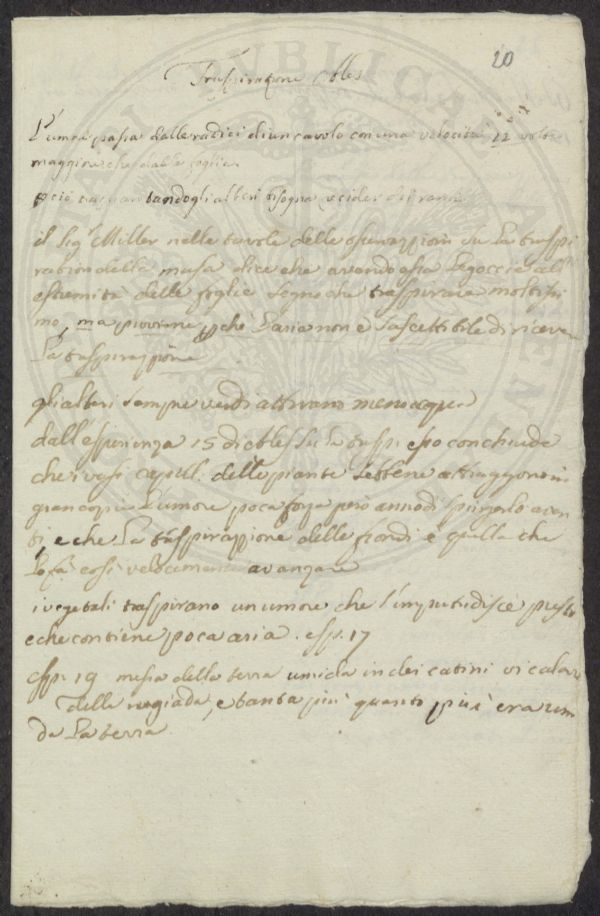 20
Traspirazione Ales
L'umore passa dalle radici di un cavolo con una velocità 12 volte
maggiore che dalle foglie
trapiantando gli alberi bisogna recider dei rami
il Sig.r Miller nelle tavole delle osservazzioni su la traspi
razion della musa dice che avendo essa le goccie all'
estremità delle foglie segno che traspirare moltissi
mo, ma piovere, pchè l'aria non è suscettibile di riceve
la traspirazzione
gli alberi sempre verdi attirano meno acque
dall'esperienza 15 di Ales su la trasp. esso conchiude
che i vasi capill. delle piante sebbene attraggono in
gran copia l'umore poca forza però anno di spingerlo avan
ti, e che la traspirazzione delle frondi è quella che
lo fa così velocemente avanzare
i vegetali traspirano un umore che s'imputridisce presto
e che contiene poca aria. esp. 17
esp. 19 messa della terra umida in dei catini vi calar
della rugiada, e tanta più quanto più era umi
da la terra